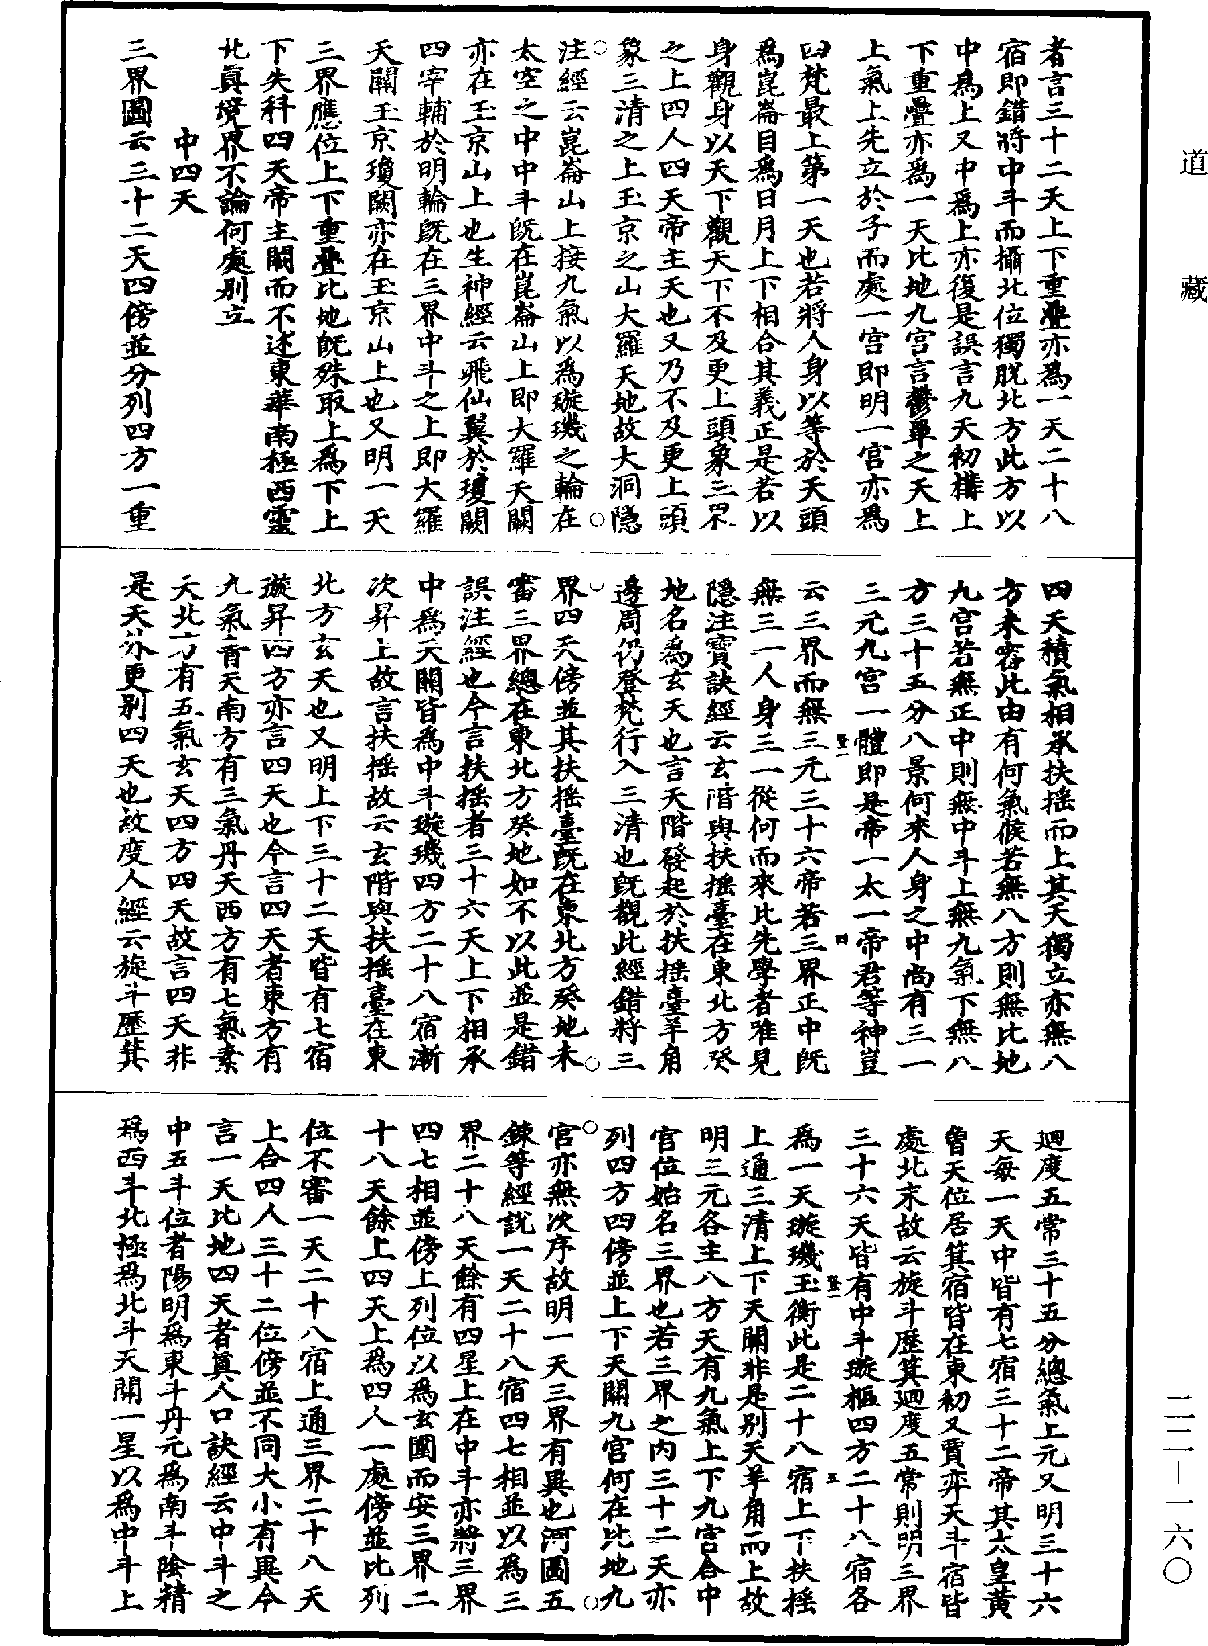 道藏
者言三十二天上下重疊亦爲一天二十八
宿即錯將中斗而攝北位獨脫北方此方以
中爲上又中爲上亦復是誤言九天初構上
下重疊亦爲一天比地九宮言鬱單之天上
上氣上先立於子而處一宮即明一宮亦爲
四梵最上第一天也若將人身以等於天頭
爲崑崙目爲日月上下相合其義正是若以
身觀身以天下觀天下不及更上頭象三界
之上四人四天帝主天也又乃不及更上頭
象三清之上玉京之山大羅天地故大洞隱
注經云崑崙山上接九氣以爲璇璣之輪在
太空之中中斗既在崑崙山上即大羅天關
亦在玉京山上也生神經云飛仙翼於瓊闕
四宰輔於明輪既在三界中斗之上即大羅
天關玉京瓊闕亦在玉京山上也又明一天
三界應位上下重疊比地既殊取上爲下上
下失科四天帝主關而不述東華南極西靈
北真境界不論何處別立
中四天
三界圖云三十二天四傍並分列四方一重
四天積氣相承扶搖而上其天獨立亦無八
方未審此由有何氣候若無八方則無比地
九宮若無正中則無中斗上無九氣下無八
方三十五分八景何來人身之中尚有三一
三元九宮一體即是帝一太一帝君等神豈
云三界而無三元三十六帝若三界正中既
無三一人身三一從何而來比先學者唯見
隱注寶訣經云玄階與扶搖臺在東北方癸
地名爲玄天也言天階發起於扶搖臺羊角
邊周仍登梵行入三清也既觀此經錯將三
界四天傍並其扶搖臺既在東北方癸地未
審三界總在東北方癸地如不以此並是錯
誤注經也今言扶搖者三十六天上下相承
中爲天關皆爲中斗璇璣四方二十八宿漸
次昇上故言扶搖故云玄階與扶搖臺在東
北方玄天也又明上下三十二天皆有七宿
璇昇四方亦言四天也今言四天者東方有
九氣青天南方有三氣丹天西方有七氣素
天北方有五氣玄天四方四天故言四天非
是天外更別四天也故度人經云旋斗歷箕
迴度五常三十五分總氣上元又明三十六
天每一天中皆有七宿三十二帝其太皇黃
曾天位居箕宿皆在東初又賈弈天斗宿皆
處北末故云旋斗歷箕迴度五常則明三界
三十六天皆有中斗璇樞四方二十八宿各
爲一天璇璣玉衡此是二十八宿上下扶搖
上通三清上下天關非是別天羊角而上故
明三元各主八方天有九氣上下九宮合中
官位始名三界也若三界之內三十二天亦
列四方四傍並上下天關九宮何在比地九
宮亦無次序故明一天三界有異也河圖五
鍊等經說一天二十八宿四七相並以爲三
界二十八天餘有四星上在中斗亦將三界
四七相並傍上列位以爲玄圖而安三界二
十八天餘上四天上爲四人一處傍並比列
位不審一天二十八宿上通三界二十八天
上合四人三十二位傍並不同大小有異今
言一天比地四天者真人口訣經云中斗之
中五斗位者陽明爲東斗丹元爲南斗陰精
爲西斗北極爲北斗天關一星以爲中斗上
二二—一六〇